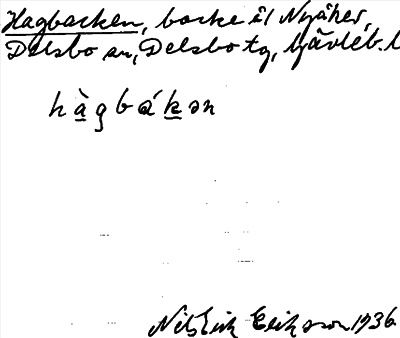 Hagbacken, backe i Nyåker,
Delsbo sn, Delsbo tg, Gävleb. l
hàgbákən
Nils Erik Eriksson 1936